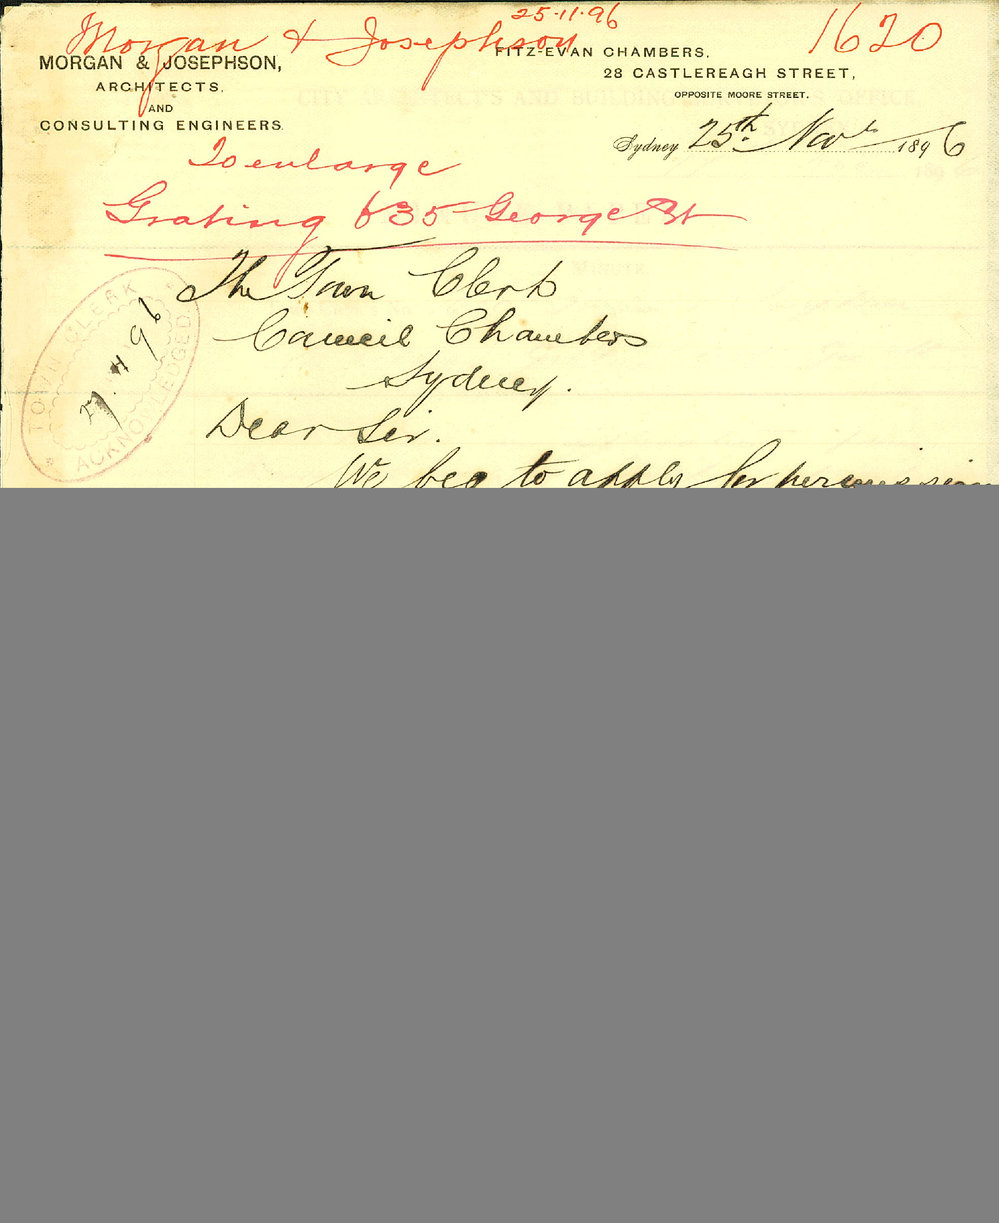 25.11.96
Morgan & Josephson
1620
MORGAN & JOSEPHSON,
ARCHITECTS,
AND
CONSULTING ENGINEERS.
FITZ-EVAN CHAMBERS,
28 CASTLEREAGH STREET,
OPPOSITE MOORE STREET.
Sydney 25th Novr 1896
To enlarge
Grating 635 George St
The Town Clerk
Council Chambers
Sydney.
TOWN CLERK
27.11.96
ACKNOWLEDGED.
Dear Sir.
We beg to apply for permission